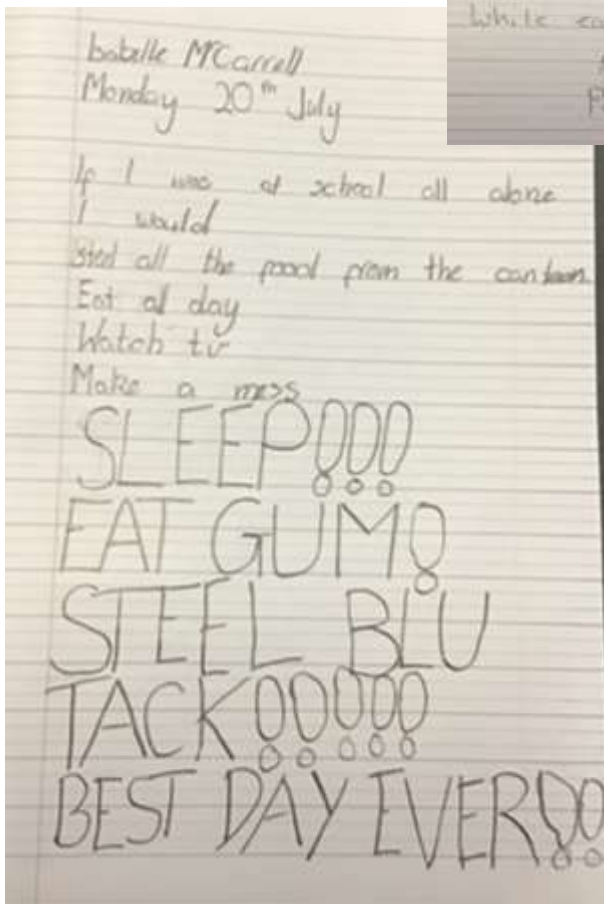 While
Isabelle McCarrell
Monday 20th July
If I was at school all alone
I would
Steel all the food from the canteen
Eat al day
Watch tv
Make a mess
SLEEP!!!
EAT GUM!
STEEL BLU
TACK!!!!!
BEST DAY EVER!!